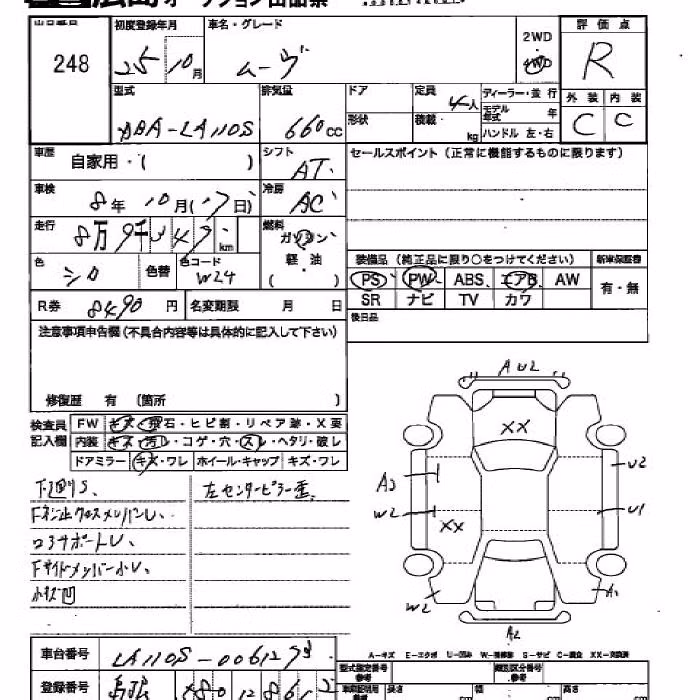 248
初度登録年月
25年10月
車名・グレード
ムーヴ
2WD
4WD
評価点
R
型式
DBA-LA110S
排気量
660cc
ドア
形状
定員
4人
積載
kg
ディーラー・並行
モデル年式 年
ハンドル 左・右
外装
C
内装
C
車歴
自家用・( )
シフト
AT
セールスポイント(正常に機能するものに限ります)
車検
8年10月(17日)
冷房
AC
走行
km
燃料
ガソリン
軽・油
( )
色
シロ
色替
色コード
W24
装備品(純正品に限り○をつけてください)
新車保証書
PS PW ABS エアB AW
有・無
SR ナビ TV カワ
後日品
R券
8490円
名変期限 月 日
注意事項申告欄(不具合内容等は具体的に記入して下さい)
修復歴 有 (箇所 )
検査員記入欄
FW キズ・飛石・ヒビ割・リペア跡・X要
内装 キズ・汚レ・コゲ・穴・スレ・ヘタリ・破レ
ドアミラー キズ・ワレ ホイール・キャップ キズ・ワレ
左センターピラー歪
コアサポートU、
小キズ凹
AU2
XX
A3
W2
XX
U2
U1
W2
A1
A2
A-キズ E-エクボ U-凹み W-補修跡 S-サビ C-腐食 XX-交換済
車台番号
登録番号
型式指定番号
類別区分番号
長さ cm
幅 cm
高さ cm